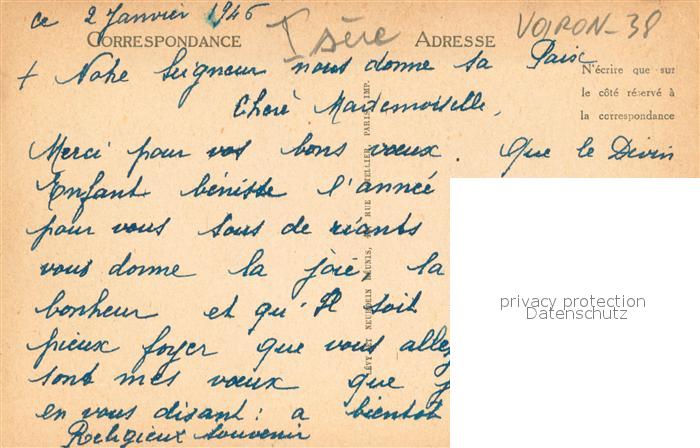 ce 2 Janvier 1946
Isère
VOIRON-38
CORRESPONDANCE
ADRESSE
+ Notre Seigneur nous donne sa Paix
N'écrire que sur
le côté réservé à
la correspondance
Cheré Mademoiselle,
Merci pour vos bons vœux. Que le Divin
Enfant bénisse l'année
pour vous sous de riants
vous donne la joie, la
bonheur et qu'Il soit
pieux foyer que vous allez
sont mes vœux que j
en vous disant : a bientot
Religieux souvenir
LÉVY ET NEURDEIN RÉUNIS, RUE LETELLIER, PARIS, IMP.
privacy protection
Datenschutz